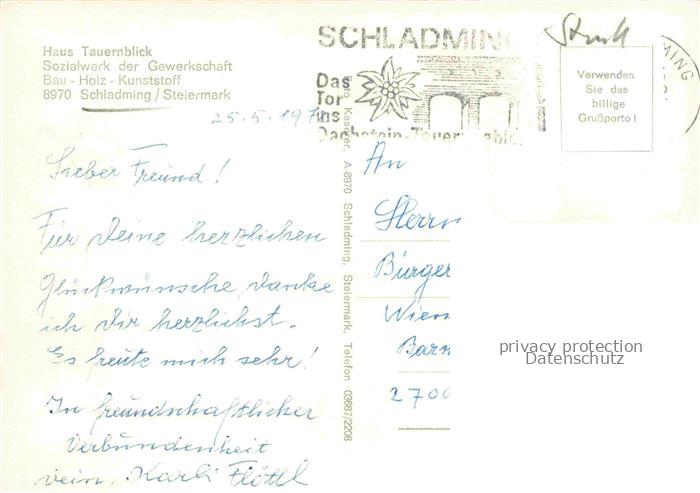 Haus Tauernblick
Sozialwerk der Gewerkschaft
Bau - Holz - Kunststoff
8970 Schladming / Steiermark
SCHLADMING
Das
Tor
ins
Dachstein-Tauerngebiet
MING
Verwenden
Sie das
billige
Grußporto!
25.5.197
Lieber Freund!
Für Deine herzlichen
Glückwünsche, danke
ich Dir herzlichst.
Es freute mich sehr!
In freundschaftlicher
Verbundenheit
Dein, Karli Flöttl
A-8970 Schladming, Steiermark, Telefon 03687/2208
An
Herrn
Bürger
Wien
Barn
2700
privacy protection
Datenschutz